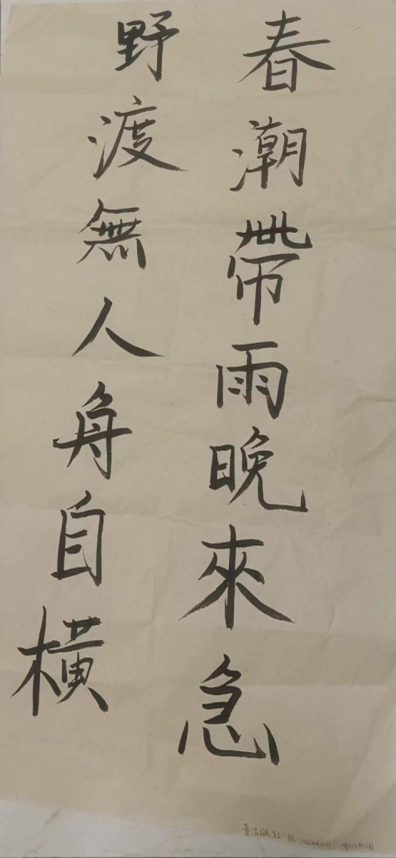 春潮帶雨晚來急
野渡無人舟自橫